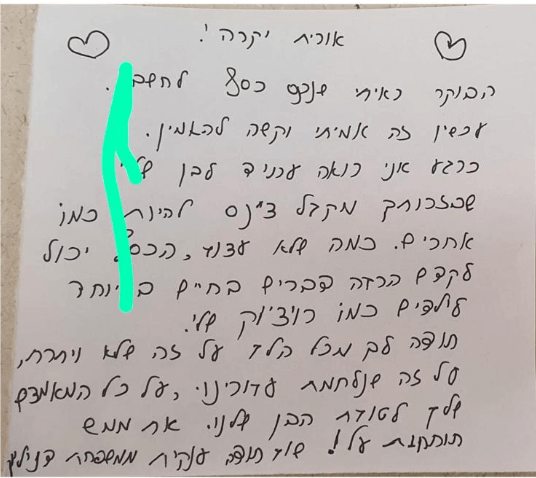 אורית יקרה !
הבוקר ראיתי שנכנס כסף לחשב .
עכשיו זה אמיתי וקשה להאמין .
כרגע אני רואה עתיד לבן שלי
שבזכותך מקבל צ'נס להיות כמו
אחרים. כמה שלא עצוב, הכסף יכול
לקדם הרבה דברים בחיים במיוחד
לילדים כמו שלי.
תודה לב מכל הלב על זה שלא ויתרת,
על זה שנלחמת עבורינו, על כל המאמצים
שלך לטובת הבן שלנו. את ממש
על ! שוב תודה ענקית ממשפחת